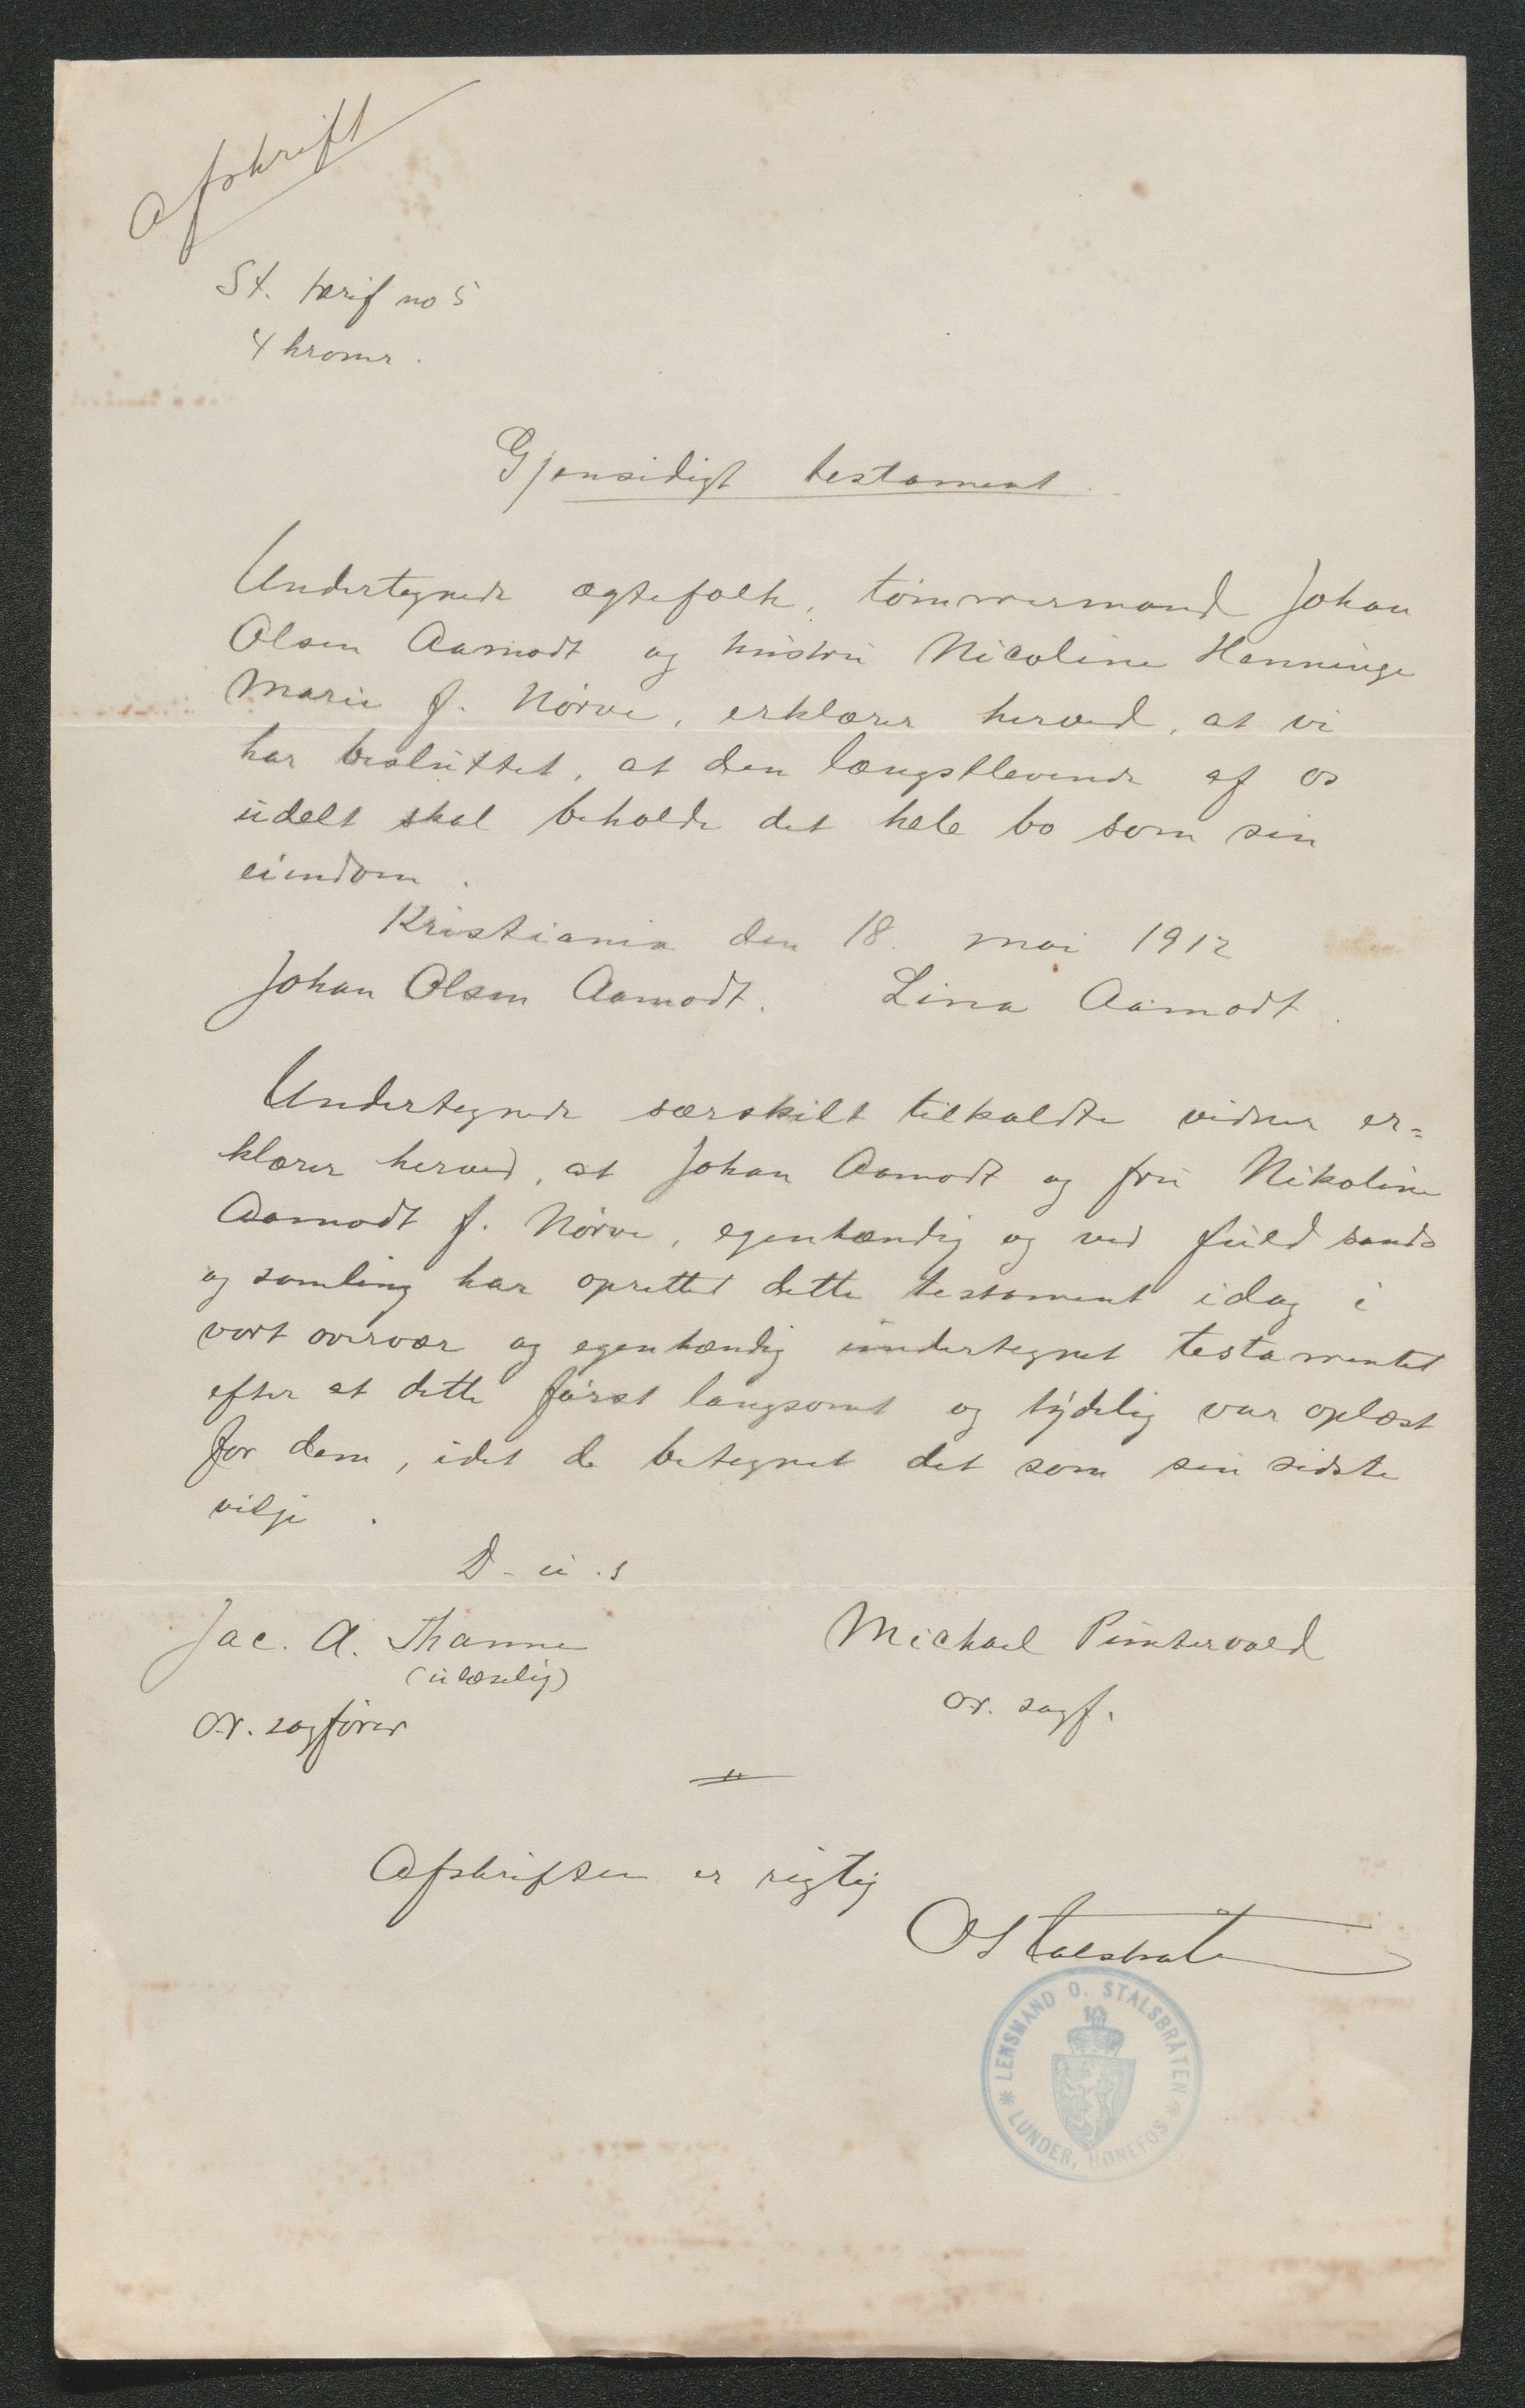 Afskrift
St. tarif no 5
4 kroner.
Gjensidigt testament.
Undertegnede ægtefolk, tømmermand Johan
Olsen Aamodt og hustru Nicoline Henninge
Marie f. Nørve, erklærer herved, at vi
har besluttet, at den længstlevende af os
udelt skal beholde det hele bo som sin
eiendom.
Kristiania den 18. mai 1912
Johan Olsen Aamodt. Lina Aamodt.
Undertegnede særskilt tilkaldte vidner er=
klærer herved, at Johan Aamodt og fru Nikoline
Aamodt f. Nørve, egenhændig og ved fuld sands
og samling har oprettet dette testament idag i
vort overvær og egenhændig undertegnet testamentet
efter at dette først langsomt og tydelig var oplæst
for dem, idet de betegnet det som sin sidste
vilje.
D. u. s
Jac. A. Thanne Michael Puntervold
(ulæselig)
or. sagfører or. sagf.
Afskriften er rigtig
O Stalsbraten
* LENSMAND O. STALSBRÅTEN *
LUNDER, HØNEFOS